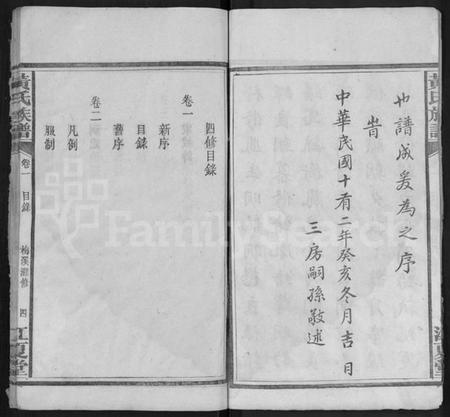 也譜成爰為之序
旹
中華民國十有二年癸亥冬月吉日
三房嗣孫敬述
黃氏族譜
卷一
目錄
梅溪灘修
四
江夏堂
四修目錄
卷一
新序
目錄
舊序
卷二
凡例
服制
FamilySearch